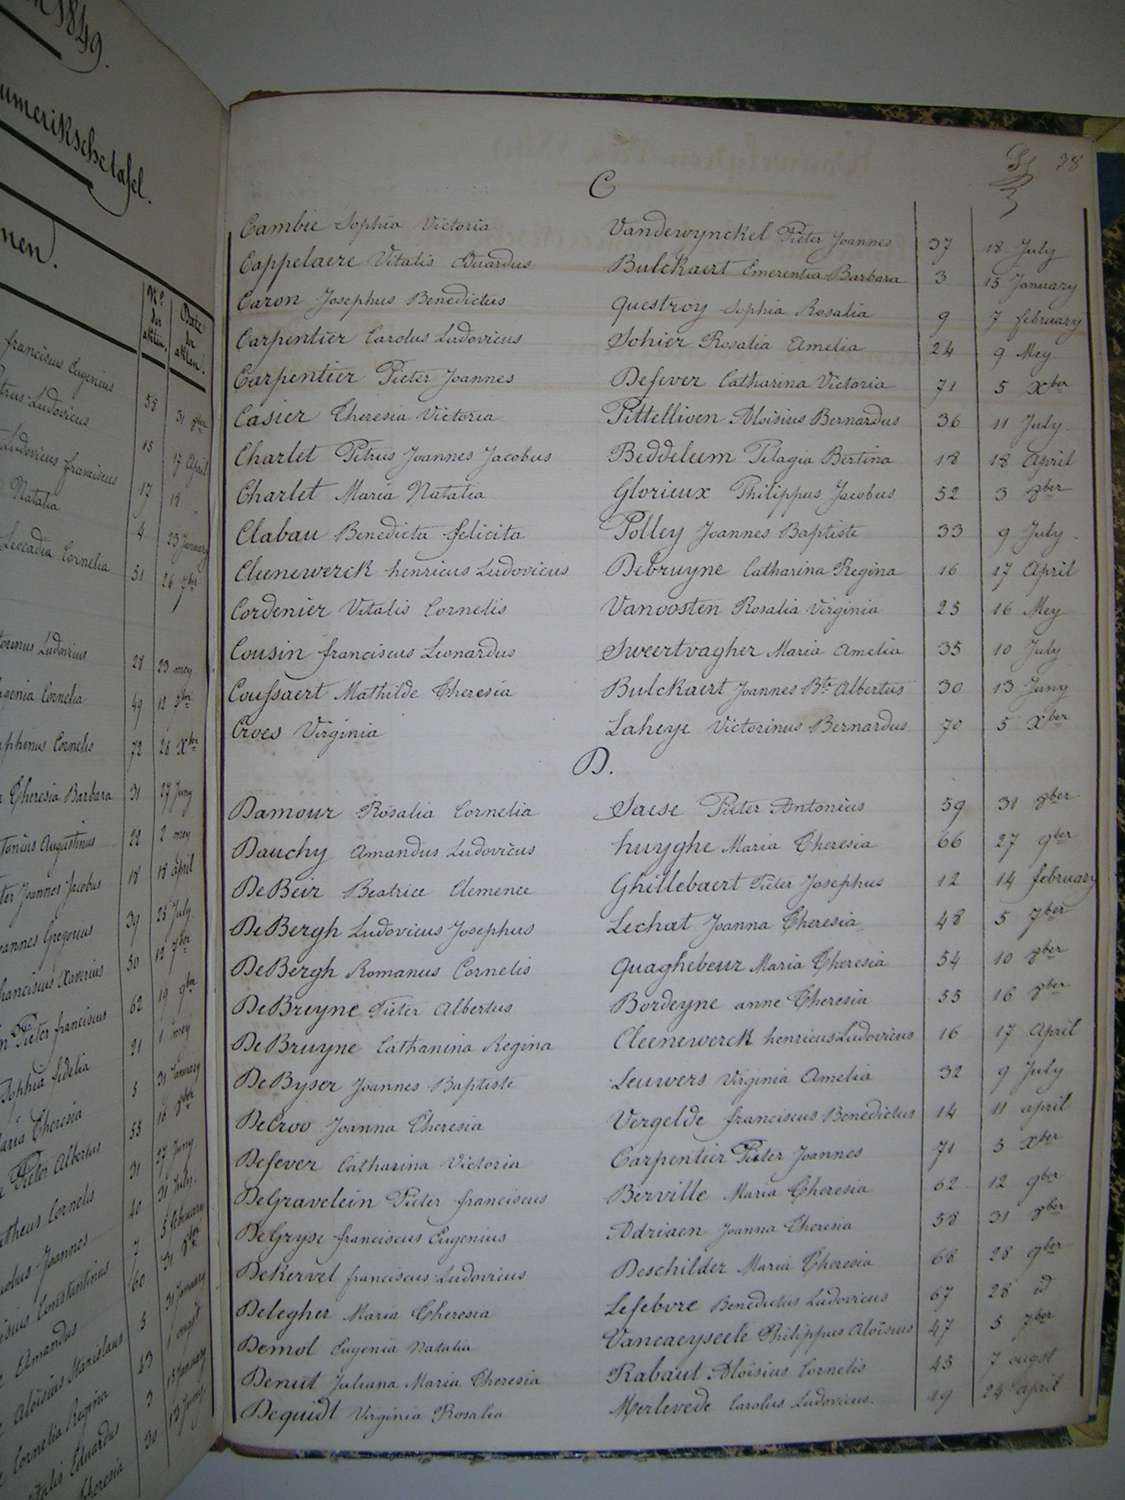 1849.
umerikschetafel.
nen.
N.º der akten.
Date der akten.
franciscus Eugenius 58 31 8ber
Ludovicus 15 17 April
Ludovicus franciscus 17 18 "
Natalia 4 23 January
Leocadia Cornelia 51 26 7ber
Ludovicus 28 23 mey
Eugenia Cornelia 49 12 7ber
Cornelis 72 26 Xber
Theresia Barbara 31 27 Juny
Augustinus 22 2 mey
Joannes Jacobus 18 18 april
Joannes Gregorius 39 25 July
franciscus Xaverius 50 12 7ber
Pieter franciscus 62 19 9ber
Sophia fidelia 21 1 mey
Maria Theresia 5 31 January
Pieter Albertus 55 16 8ber
Mattheus Cornelis 31 27 Juny
Joannes 40 31 July
Constantinus 7 5 february
Amandus 60 31 8ber
Aloisius Stanislaus 5 31 January
Cornelia Regina 43 7 augst
Vitalis Eduardus 3 15 January
Theresia 30 13 Juny
38
C
Cambie Sophia Victoria Vandewynckel Pieter Joannes 37 18 July
Cappelaere Vitalis Eduardus Bulckaert Emerentia Barbara 3 15 January
Caron Josephus Benedictus Questroy Sophia Rosalia 9 7 february
Carpentier Carolus Ludovicus Sohier Rosalia Amelia 24 9 Mey
Carpentier Pieter Joannes Defever Catharina Victoria 71 5 Xber
Casier Theresia Victoria Pittellioen Aloisius Bernardus 36 11 July
Charlet Petrus Joannes Jacobus Beddeleem Pelagia Bertina 18 18 April
Charlet Maria Natalia Glorieux Philippus Jacobus 52 3 8ber
Clabau Benedicta felicita Polley Joannes Baptiste 33 9 July
Cleenewerck henricus Ludovicus Debruyne Catharina Regina 16 17 April
Cordenier Vitalis Cornelis Vanoosten Rosalia Virginia 25 16 Mey
Cousin franciscus Leonardus Sweertvagher Maria Amelia 35 10 July
Coussaert Mathilde Theresia Bulckaert Joannes Bte Albertus 30 13 Juny
Croes Virginia Laheye Victorinus Bernardus 70 5 Xber
D.
Damour Rosalia Cornelia Saese Pieter Antonius 59 31 8ber
Dauchy Amandus Ludovicus huyghe Maria Theresia 66 27 9ber
DeBeir Beatrice Clemence Ghillebaert Pieter Josephus 12 14 february
DeBergh Ludovicus Josephus Lechat Joanna Theresia 48 5 7ber
DeBergh Romanus Cornelis Quaghebeur Maria Theresia 54 10 8ber
DeBruyne Pieter Albertus Bordeyne anne Theresia 55 16 8ber
DeBruyne Catharina Regina Cleenewerck henricus Ludovicus 16 17 April
DeByser Joannes Baptiste Leuwers Virginia Amelia 32 9 July
DeCroo Joanna Theresia Vergelde franciscus Benedictus 14 11 april
Defever Catharina Victoria Carpentier Pieter Joannes 71 5 Xber
DeGravelein Pieter franciscus Berville Maria Theresia 62 12 9ber
DeGryse franciscus Eugenius Adriaen Joanna Theresia 58 31 8ber
Dekervel franciscus Ludovicus Deschilder Maria Theresia 68 28 9ber
Delegher Maria Theresia Lefebvre Benedictus Ludovicus 67 28 id
Demol Eugenia Natalia Vancaeyseele Philippus Aloïsius 47 5 7ber
Denut Juliana Maria Theresia Rabaut Aloïsius Cornelis 43 7 augst
Dequidt Virginia Rosalia Merlevede Carolus Ludovicus. 19 24 April